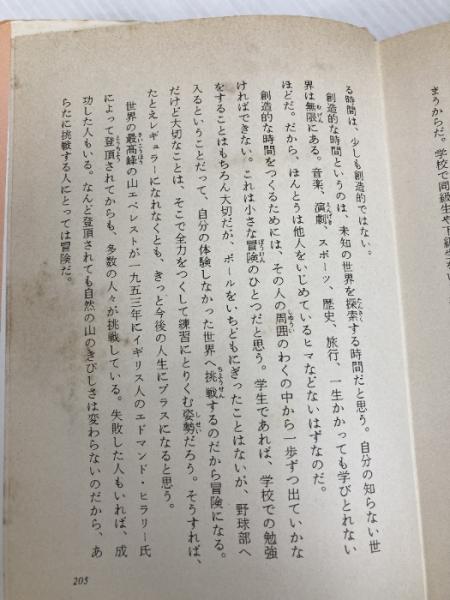 まうからだ。学校で同級生や下級生をい
る時間は、少しも創造的ではない。
創造的な時間というのは、未知の世界を探索する時間だと思う。自分の知らない世
界は無限にある。音楽、演劇、スポーツ、歴史、旅行、一生かかっても学びとれない
ほどだ。だから、ほんとうは他人をいじめているヒマなどないはずなのだ。
創造的な時間をつくるためには、その人の周囲のわくの中から一歩ずつ出ていかな
ければできない。これは小さな冒険のひとつだと思う。学生であれば、学校での勉強
をすることはもちろん大切だが、ボールをいちどもにぎったことはないが、野球部へ
入るということだって、自分の体験しなかった世界へ挑戦するのだから冒険になる。
だけど大切なことは、そこで全力をつくして練習にとりくむ姿勢だろう。そうすれば、
たとえレギュラーになれなくとも、きっと今後の人生にプラスになると思う。
世界の最高峰の山エベレストが一九五三年にイギリス人のエドマンド・ヒラリー氏
によって登頂されてからも、多数の人々が挑戦している。失敗した人もいれば、成
功した人もいる。なんど登頂されても自然の山のきびしさは変わらないのだから、あ
らたに挑戦する人にとっては冒険だ。
205